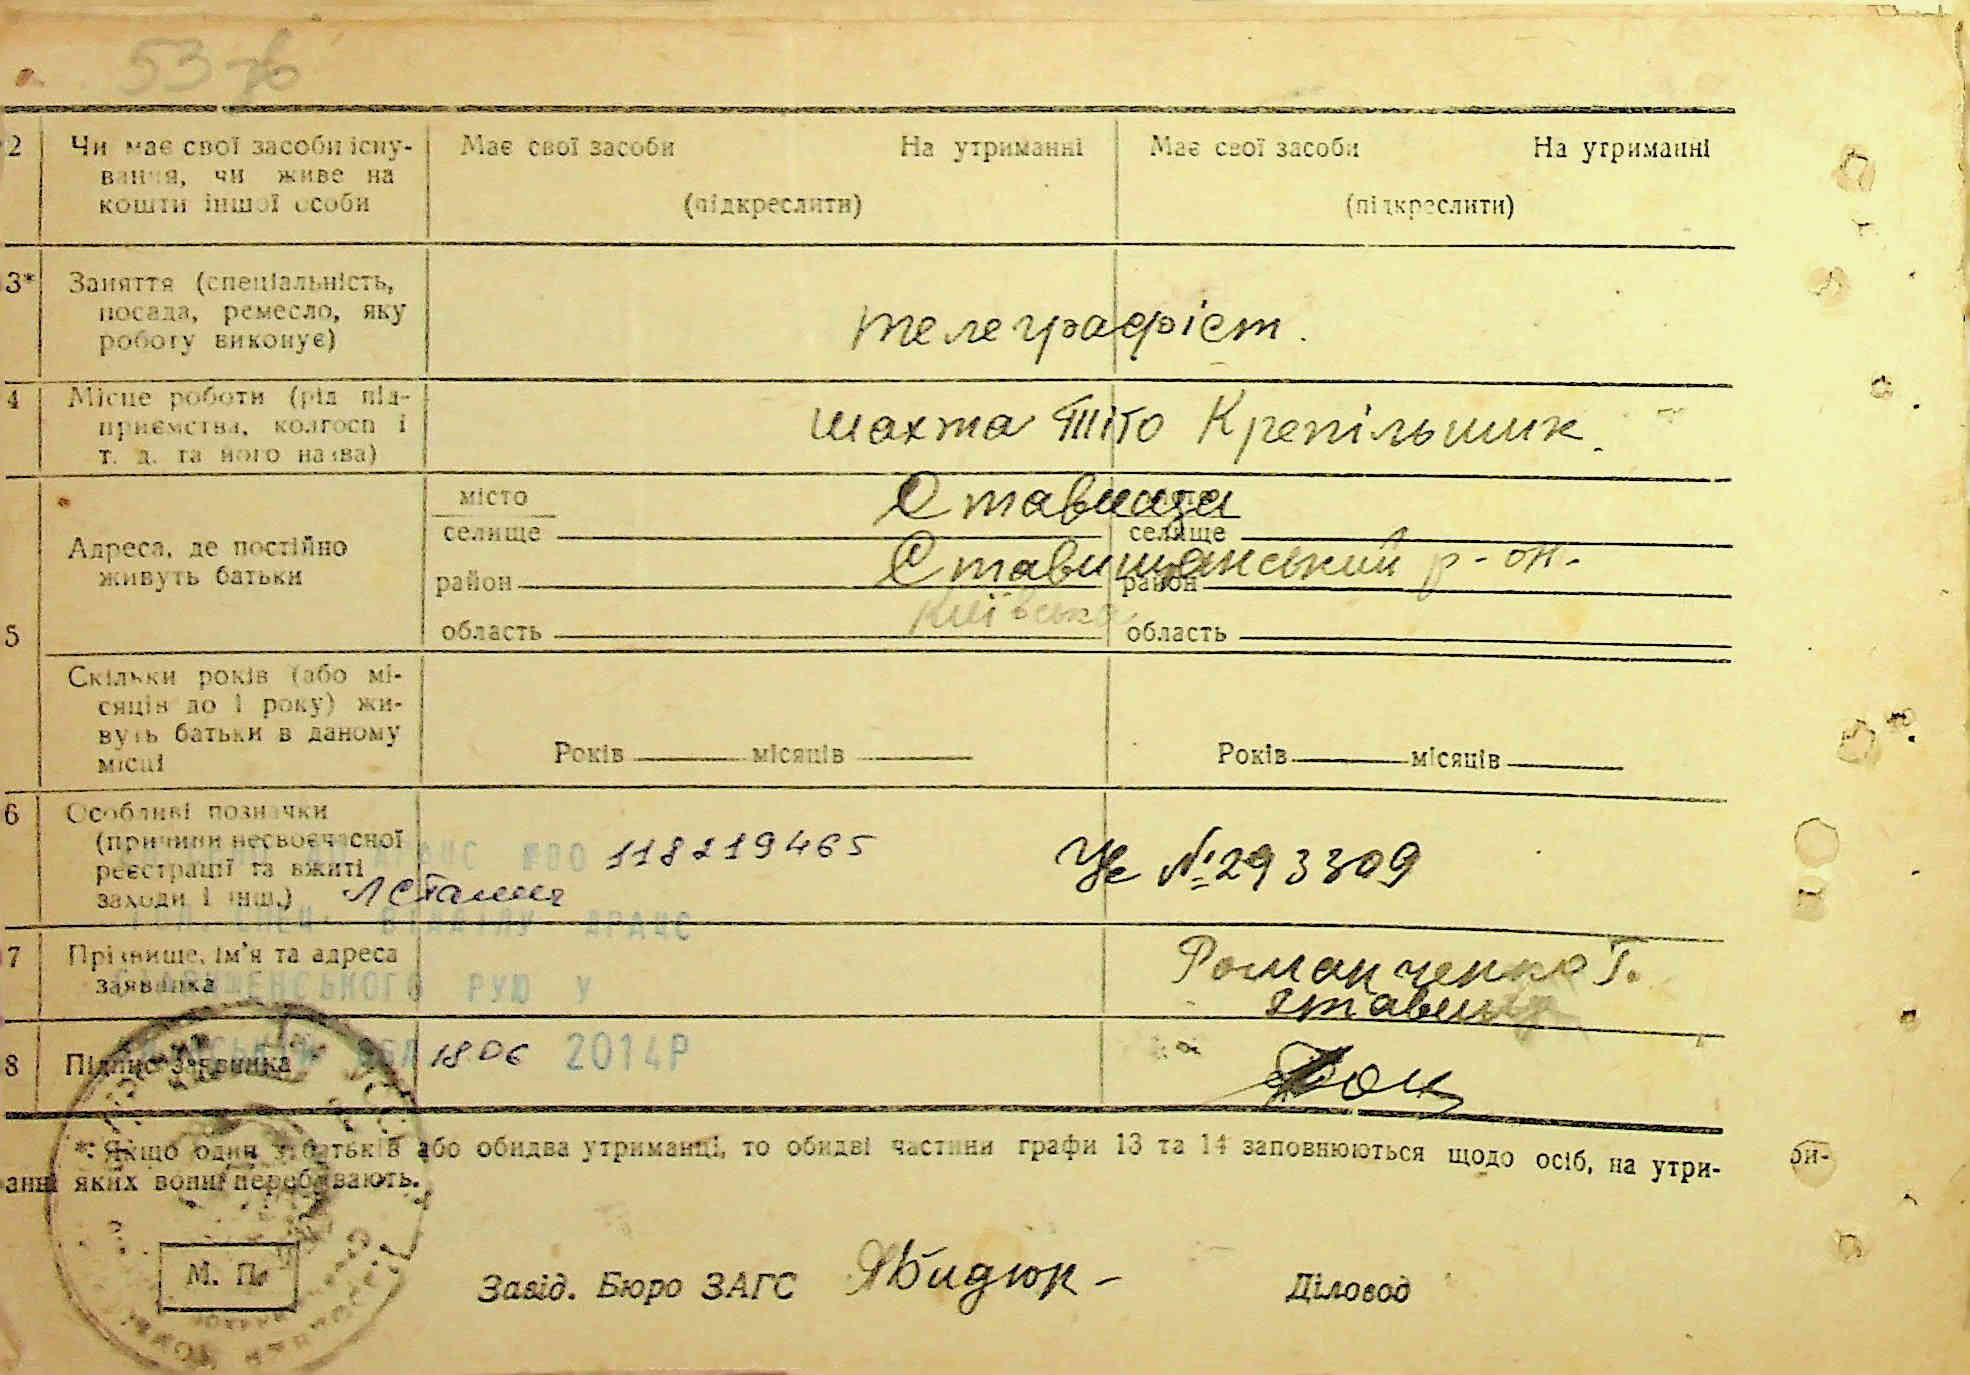 53
2 Чи має свої засоби існу- Має свої засоби На утриманні Має свої засоби На утриманні
вання, чи живе на
кошти іншої особи (підкреслити) (підкреслити)
3* Заняття (спеціальність,
посада, ремесло, яку телеграфіст.
роботу виконує)
4 Місце роботи (рід під-
приємства, колгосп і шахта Крепільщик.
т. д. та його назва)
місто Ставища
селище селище
Адреса, де постійно Ставищанський р-он.
живуть батьки район район
Київська
5 область область
Скільки років (або мі-
сяців до 1 року) жи-
вуть батьки в даному Років місяців Років місяців
місці
6 Особливі позначки
(причини несвоєчасної 118219465 №293309
реєстрації та вжиті
заходи і інш.)
ВІДДІЛУ ДРАЦС
7 Прізвище, ім'я та адреса Романченко Г.
заявника Ставища
РУЮ У
8 Підпис заявника 1806 2014Р
* Якщо один з батьків або обидва утриманці, то обидві частини графи 13 та 14 заповнюються щодо осіб, на утри-
анні яких вони перебувають.
М. П.
Завід. Бюро ЗАГС Діловод